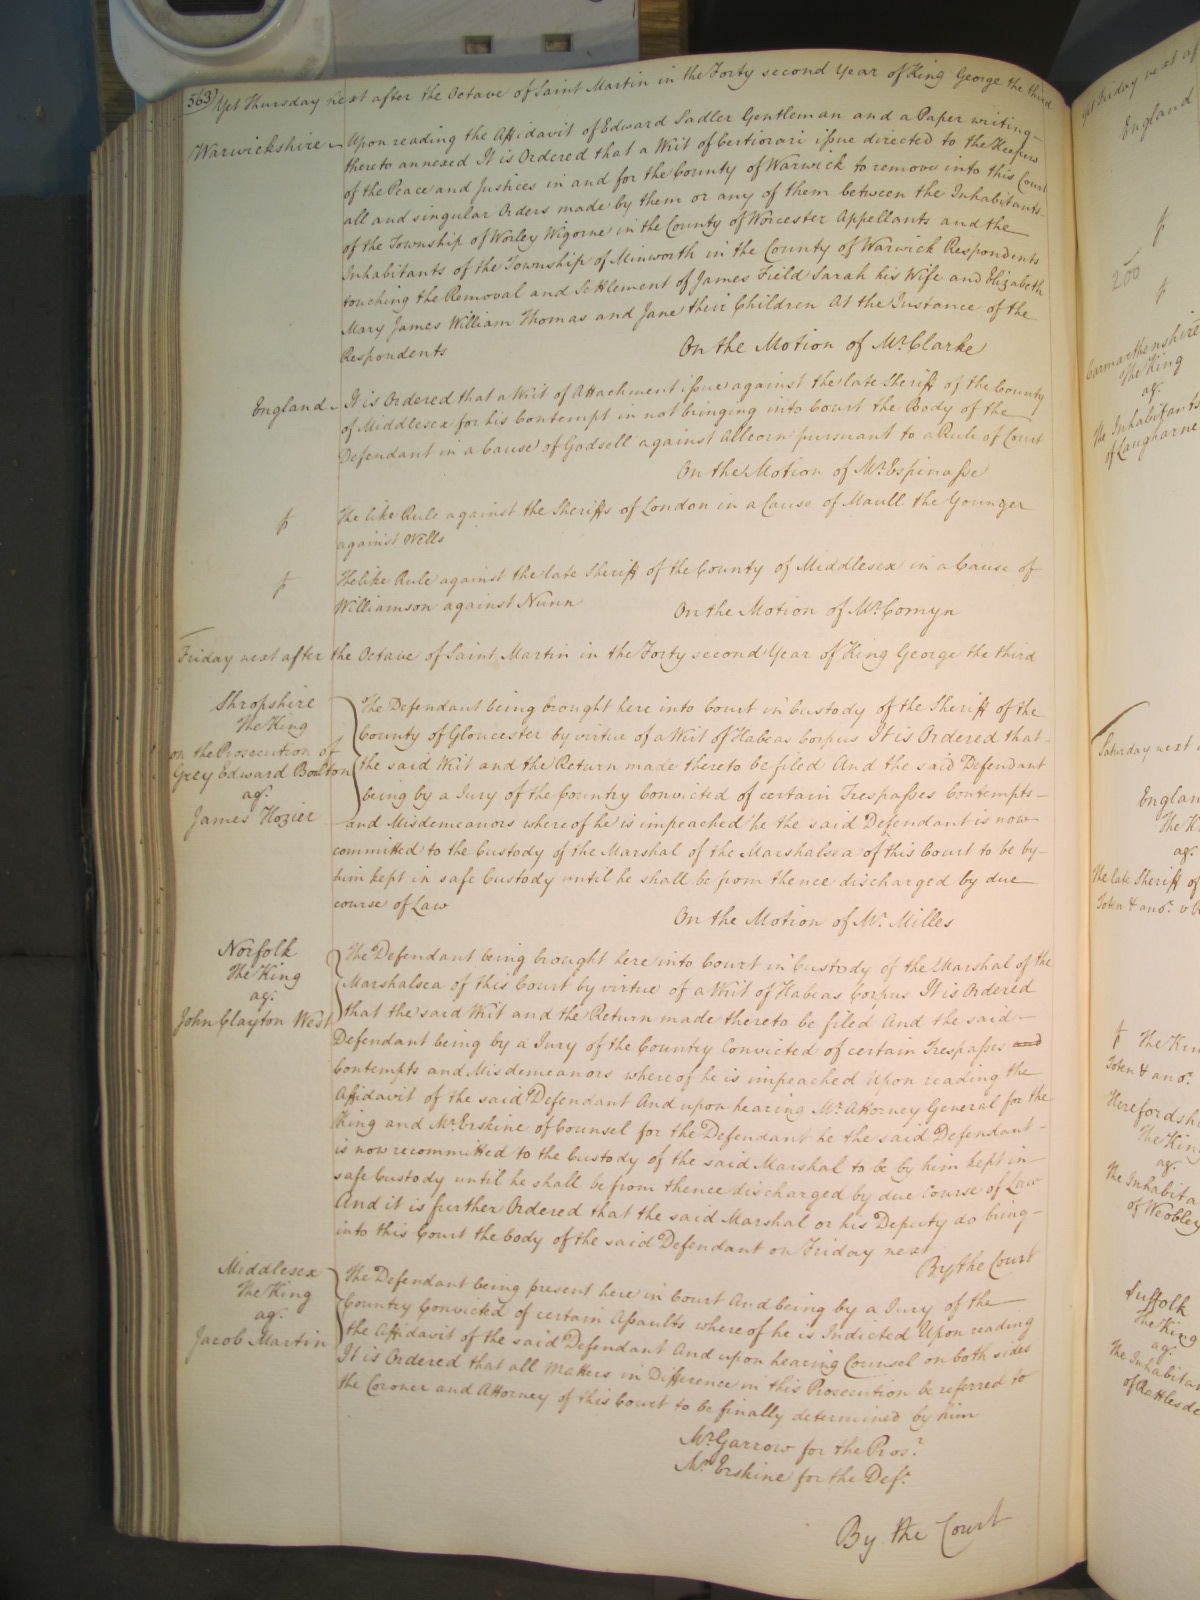 563 Yet Thursday next after the Octave of Saint Martin in the Forty second Year of King George the third
Warwickshire Upon reading the Affidavit of Edward Sadler Gentleman and a Paper writing
thereto annexed It is Ordered that a Writ of Certiorari issue directed to the Keepers
of the Peace and Justices in and for the County of Warwick to remove into this Court
all and singular Orders made by them or any of them between the Inhabitants
of the Township of Worley Wigorne in the County of Worcester Appellants and the
Inhabitants of the Township of Minworth in the County of Warwick Respondents
touching the Removal and Settlement of James Field Sarah his Wife and Elizabeth
Mary James William Thomas and Jane their Children At the Instance of the
Respondents
On the Motion of Mr. Clarke
England It is Ordered that a Writ of Attachment issue against the late Sheriff of the County
of Middlesex for his Contempt in not bringing into Court the Body of the
Defendant in a Cause of Godsell against Allcorn pursuant to a Rule of Court
On the Motion of Mr. Espinasse
The like Rule against the Sheriffs of London in a Cause of Maull the Younger
against Wells
The like Rule against the late Sheriff of the County of Middlesex in a Cause of
Williamson against Nunn
On the Motion of Mr. Comyn
Friday next after the Octave of Saint Martin in the Forty second Year of King George the third
Shropshire
The King
on the Prosecution of
Grey Edward Boulton
agt.
James Hozier
The Defendant being brought here into Court in Custody of the Sheriff of the
County of Gloucester by virtue of a Writ of Habeas Corpus It is Ordered that
the said Writ and the Return made thereto be filed And the said Defendant
being by a Jury of the Country Convicted of certain Trespasses Contempts
and Misdemeanors whereof he is impeached he the said Defendant is now
committed to the Custody of the Marshal of the Marshalsea of this Court to be by
him kept in safe Custody until he shall be from thence discharged by due
course of Law
On the Motion of Mr. Milles
Norfolk
The King
agt.
John Clayton West
The Defendant being brought here into Court in Custody of the Marshal of the
Marshalsea of this Court by virtue of a Writ of Habeas Corpus It is Ordered
that the said Writ and the Return made thereto be filed And the said
Defendant being by a Jury of the Country Convicted of certain Trespasses and
Contempts and Misdemeanors whereof he is impeached Upon reading the
Affidavit of the said Defendant And upon hearing Mr. Attorney General for the
King and Mr. Erskine of Counsel for the Defendant he the said Defendant
is now recommitted to the Custody of the said Marshal to be by him kept in
safe Custody until he shall be from thence discharged by due Course of Law
And it is further Ordered that the said Marshal or his Deputy do bring
into this Court the body of the said Defendant on Friday next
By the Court
Middlesex
The King
agt.
Jacob Martin
The Defendant being present here in Court And being by a Jury of the
Country Convicted of certain Assaults whereof he is Indicted Upon reading
the Affidavit of the said Defendant And upon hearing Counsel on both sides
It is Ordered that all Matters in Difference in this Prosecution be referred to
the Coroner and Attorney of this Court to be finally determined by him
Mr. Garrow for the Pros.r
Mr. Erskine for the Def.t
By the Court
Yet Friday next af
England
200
Carmarthenshire
The King
agt.
The Inhabitants
of Laugharne
Saturday next
Englan
The K
agt.
The late Sheriff of
Toten & anor. v
The Kin
Toten & anor.
Herefordsh
The King
agt.
The Inhabita
of Weobley
Suffolk
The King
agt.
The Inhabitan
of Rattlesde